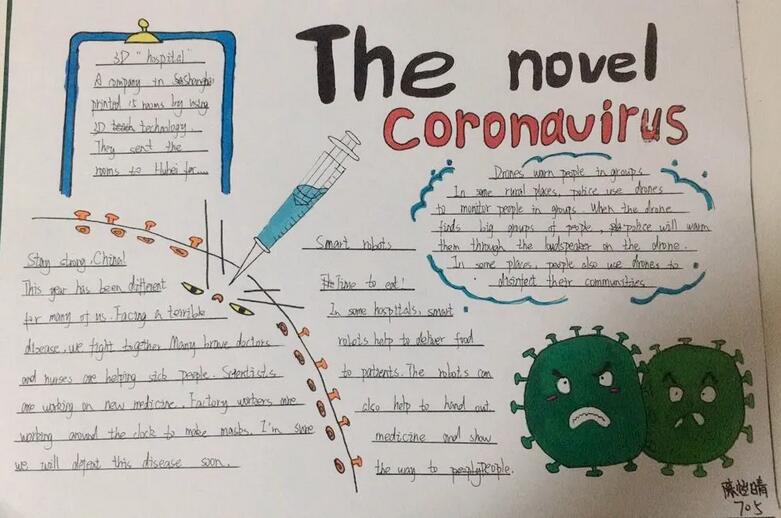 The novel
coronavirus
3D "hospital"
A company in Shanghai
printed 15 rooms by using
3D technology.
They sent the
rooms to Hubei for....
Drones warn people in groups
In some rural places, police use drones
to monitor people in groups. When the drone
finds big groups of people, police will warm
them through the loudspeaker on the drone.
In some places, people also use drones to
disinfect their communities
Stay strong, China!
This year has been different
for many of us. Facing a terrible
disease, we fight together. Many brave doctors
and nurses are helping sick people. Scientists
are working on new medicine. Factory workers are
working around the clock to make masks. I'm sure
we will defeat this disease soon.
Smart robots
Time to eat!
In some hospitals, smart
robots help to deliver food
to patients. The robots can
also help to hand out
medicine and show
the way to people.
705